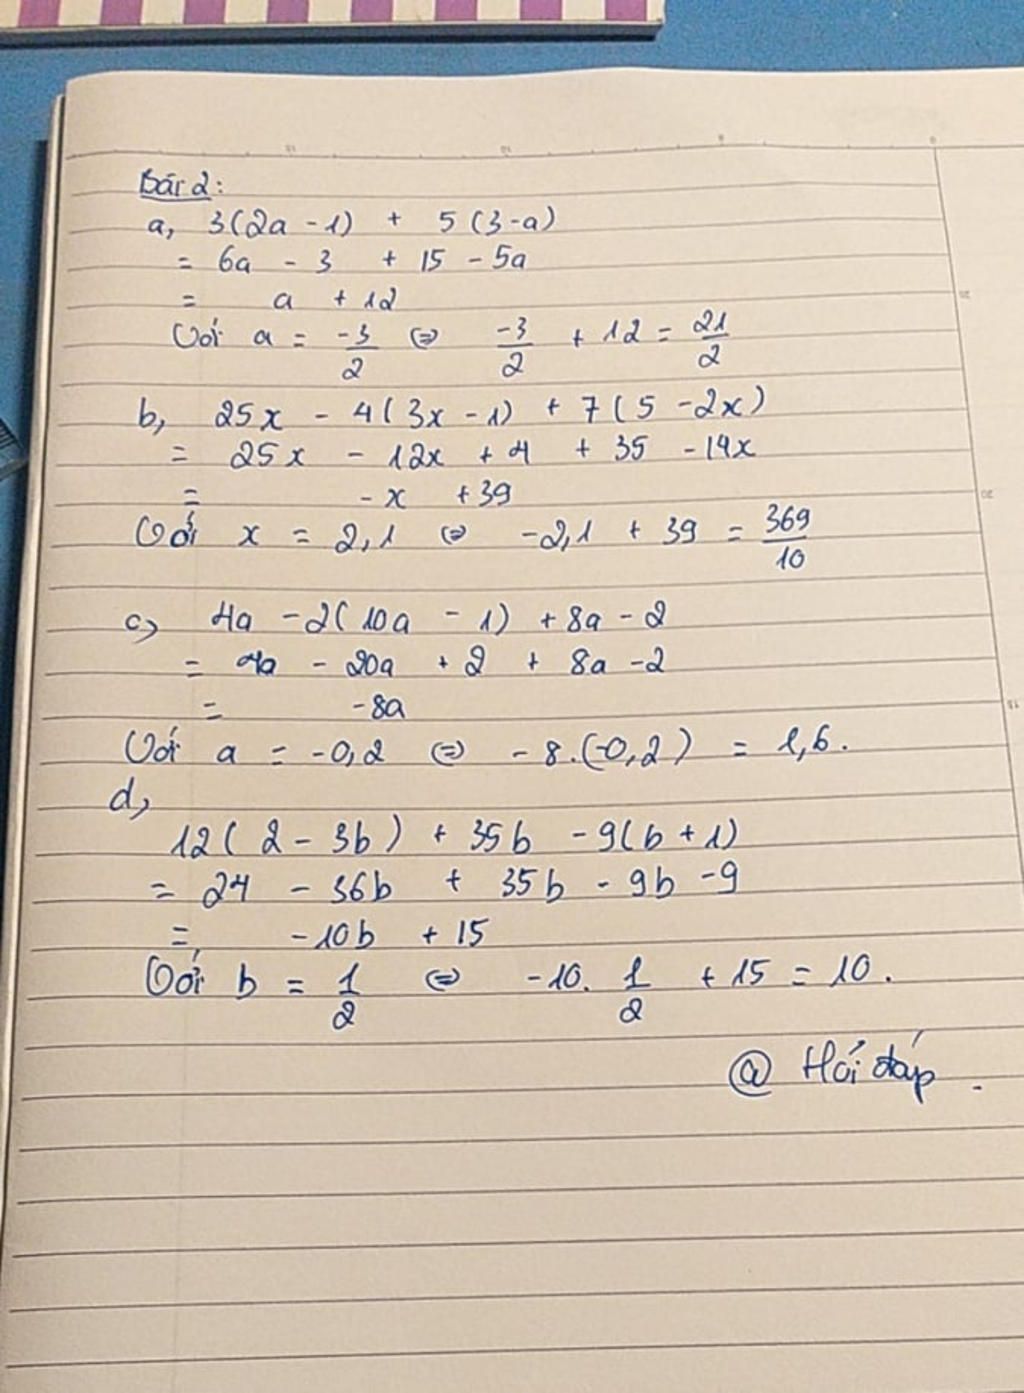 Bài 2:
a, 3(2a - 1) + 5 (3-a)
= 6a - 3 + 15 - 5a
= a + 12
Với a = -3/2 ⇔ -3/2 + 12 = 21/2
b, 25x - 4(3x - 1) + 7(5 - 2x)
= 25x - 12x + 4 + 35 - 14x
= -x + 39
Với x = 2,1 ⇔ -2,1 + 39 = 369/10
c, 4a - 2(10a - 1) + 8a - 2
= 4a - 20a + 2 + 8a - 2
= -8a
Với a = -0,2 ⇔ -8.(-0,2) = 1,6.
d,
12(2 - 3b) + 35b - 9(b + 1)
= 24 - 36b + 35b - 9b - 9
= -10b + 15
Với b = 1/2 ⇔ -10. 1/2 + 15 = 10.
@ Hỏi đáp.